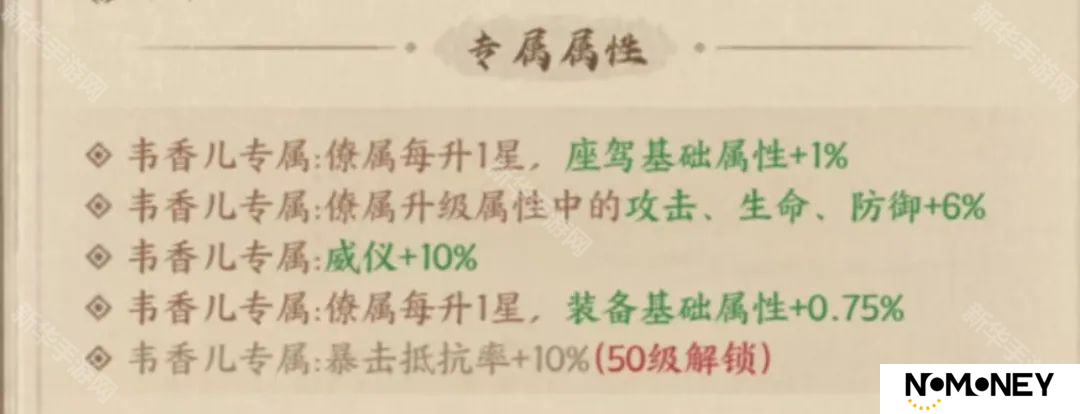 专属属性
韦香儿专属:僚属每升1星，座驾基础属性+1%
韦香儿专属:僚属升级属性中的攻击、生命、防御+6%
韦香儿专属:威仪+10%
韦香儿专属:僚属每升1星，装备基础属性+0.75%
韦香儿专属:暴击抵抗率+10%(50级解锁)
NOMONEY
新华手游网
新华手游网
新华手游网
新华手游网
新华手游网